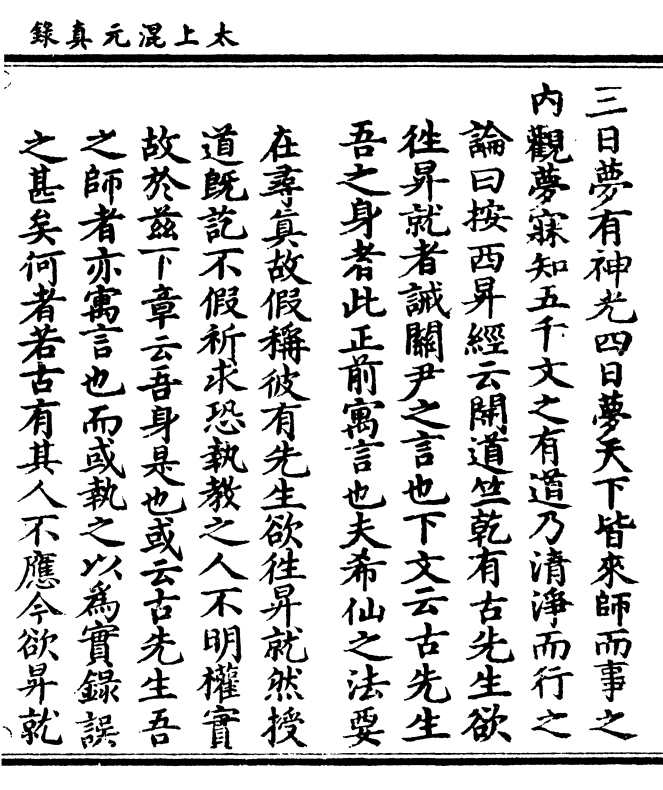 太上混元真錄
三日夢有神光四日夢天下皆來師而事之
內觀夢寐知五千文之有道乃清淨而行之
論曰按西昇經云開道竺乾有古先生欲
徃昇就者誡關尹之言也下文云古先生
吾之身者此正前寓言也夫希仙之法要
在尋真故假稱彼有先生欲徃昇就然授
道旣訖不假祈求恐執教之人不明權實
故於茲下章云吾身是也或云古先生吾
之師者亦寓言也而或執之以爲實錄誤
之甚矣何者若古有其人不應今欲昇就